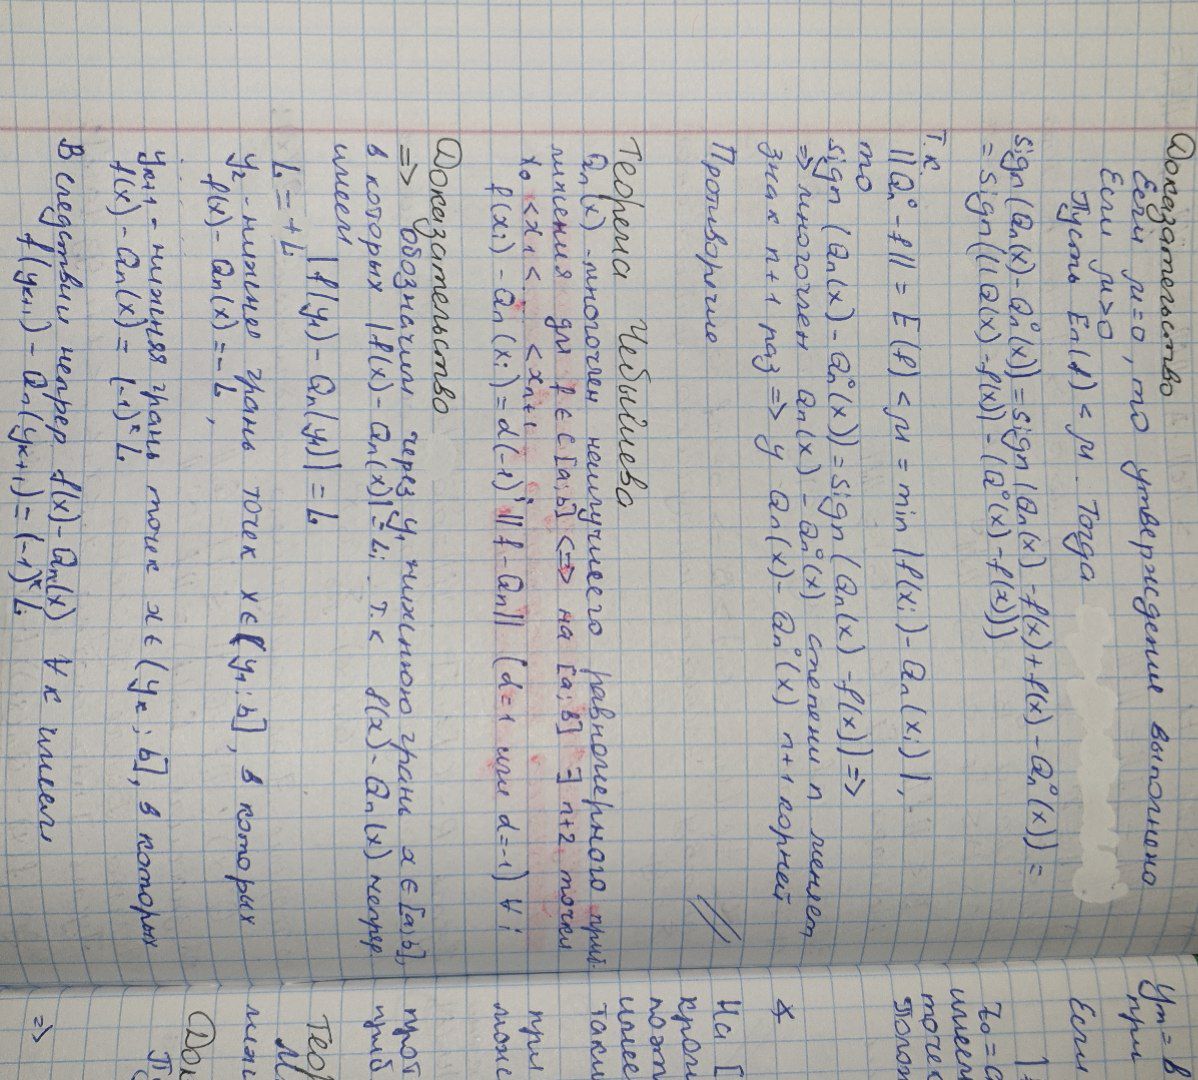 Доказательство
Если μ=0, то утверждение выполнено
Если μ>0
Пусть En(f) < μ. Тогда
sign(Qn(x)-Qn⁰(x)) = sign(Qn(x) -f(x)+f(x) -Qn⁰(x)) =
= sign(((Q(x) -f(x)) - (Q⁰(x) -f(x)))
Т.к.
||Qn⁰-f|| = E(f) < μ = min |f(xi)- Qn(xi)|,
то
sign (Qn(x)-Qn⁰(x)) = sign (Qn(x) -f(x)) =>
=> многочлен Qn(x) - Qn⁰(x) степени n меняет
знак n+1 раз => у Qn(x)- Qn⁰(x) n+1 корней
Противоречие
Теорема Чебышева
Qn(x) -многочлен наилучшего равномерного приб-
лижения для f ∈ C[a;b] <=> на [a;b] ∃ n+2 точки
x₀ <x₁ <.... <xn+1
f(xi) - Qn(xi) = α(-1)ⁱ ||f-Qn|| (α=1 или α=-1) ∀ i
Доказательство
=> обозначим через y₁ нижнюю грань x ∈ [a;b],
в которых |f(x)- Qn(x)| = L; Т.к f(x)-Qn(x) непрер.
имеем
|f(y₁) - Qn(y₁)| = L
L = +L
y₂ -нижняя грань точек x∈[y₁; b], в которых
f(x)- Qn(x) = - L,
......
yк+1 - нижняя грань точек x ∈ (yк; b], в которых
f(x) -Qn(x) = (-1)ᵏ L
В следствии непрер f(x)-Qn(x) ∀ к имеем
f(yк+1) - Qn(yк+1) = (-1)ᵏ L
ym = b
при
Если
z₀ = a
имеем
точек
Полож
На [
кром
поэт
имее
таки
при
можс
прот
приб
Теор
лиж
Док
=>